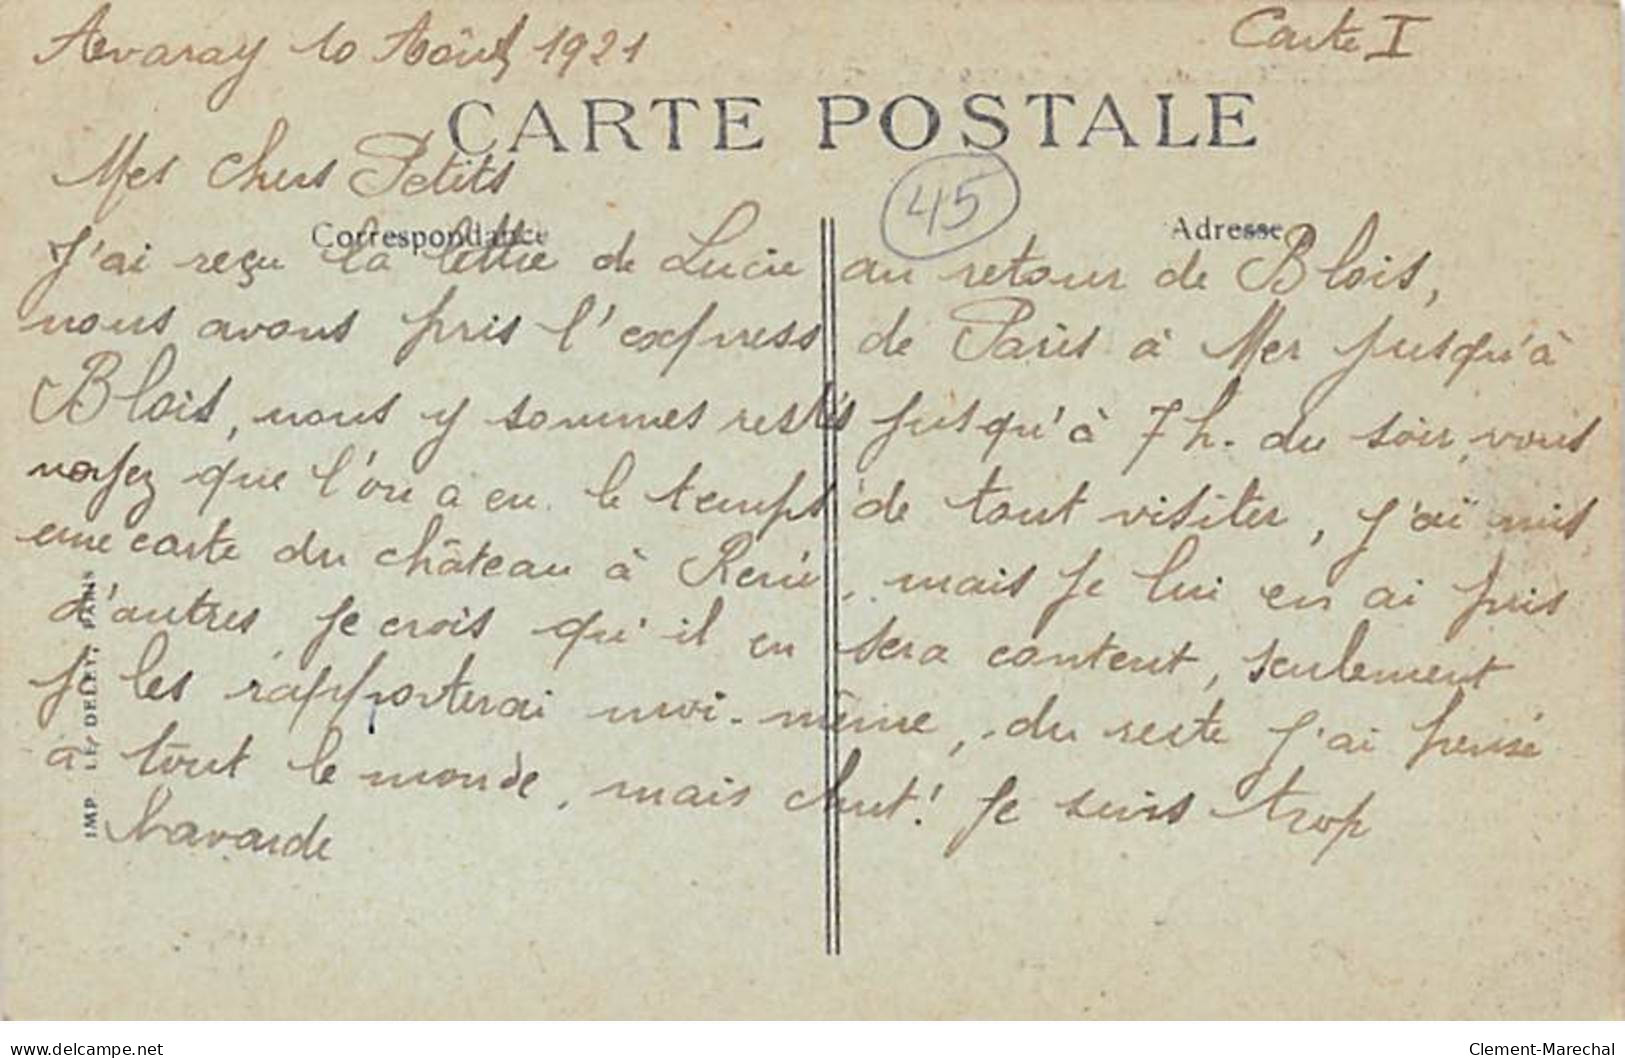 Avaray 10 Août 1921
Carte I
CARTE POSTALE
Mes chers Petits
45
Correspondance
Adresse
J'ai reçu la lettre de Lucie au retour de Blois,
nous avons pris l'express de Paris à Mer jusqu'à
Blois, nous y sommes restés jusqu'à 7 h. du soir, vous
voyez que l'on a eu le temps de tout visiter, j'ai mis
une carte du château à René, mais je lui en ai pris
d'autres, je crois qu'il en sera content, seulement
je les rapporterai moi-même, du reste j'ai pensé
à tout le monde, mais chut! Je suis trop
bavarde
IMP. LE DELEY, PARIS
delcampe.net
Clement-Marechal